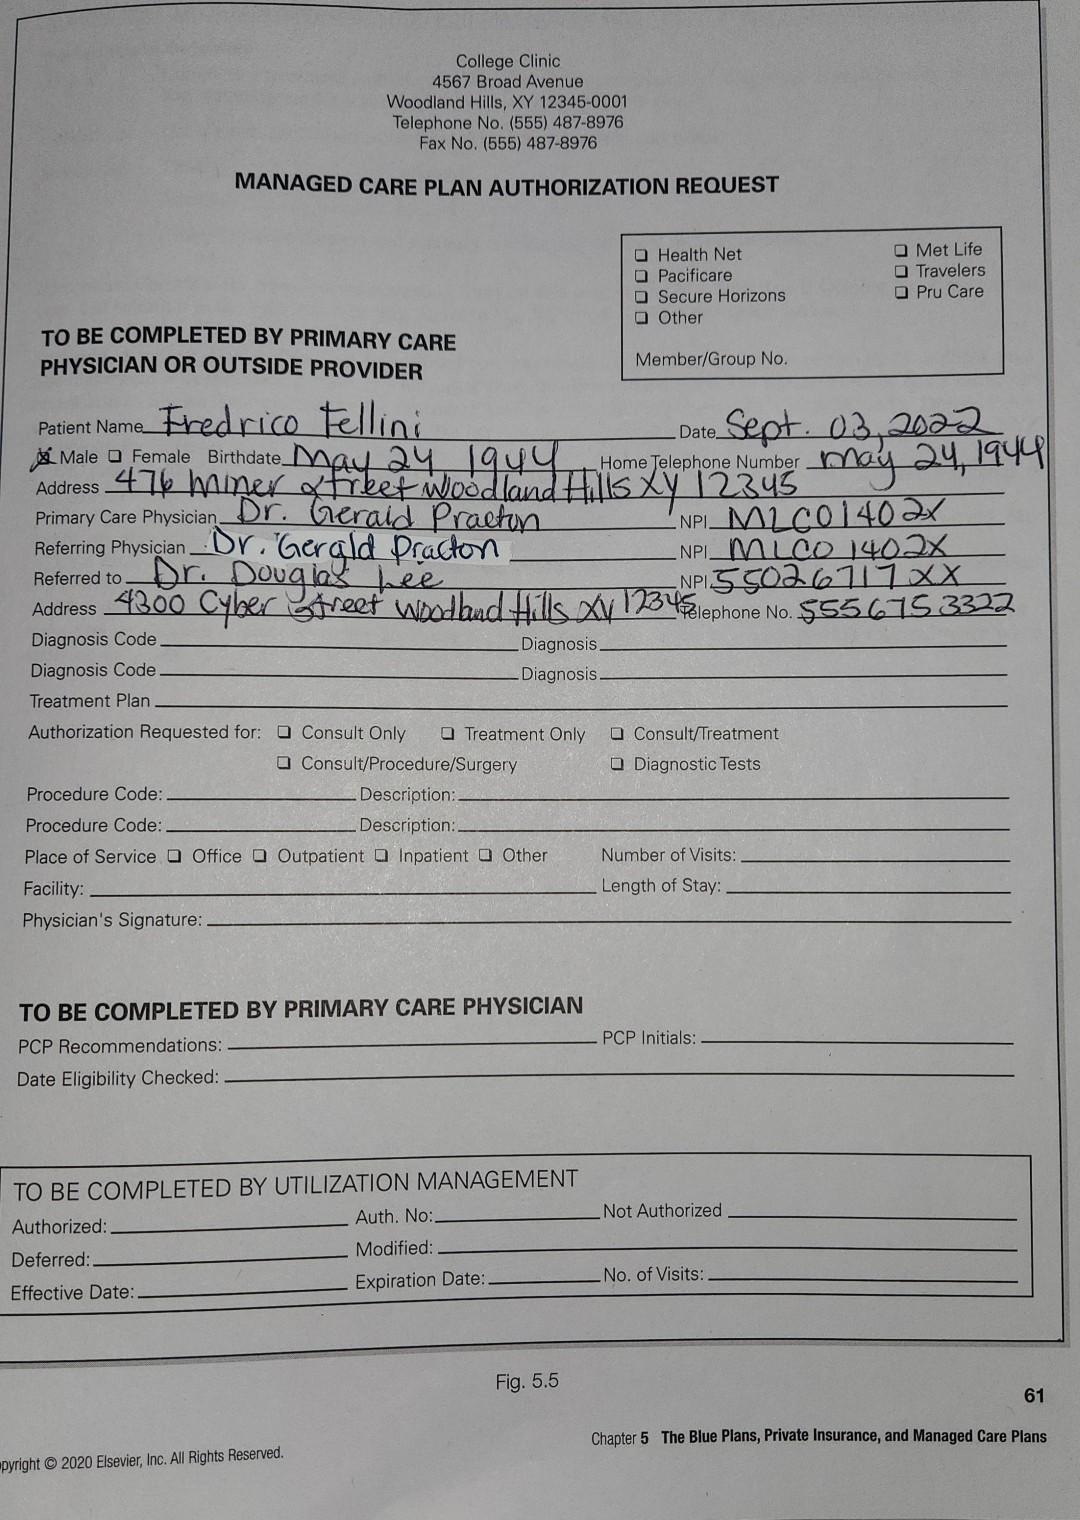 College Clinic
4567 Broad Avenue
Woodland Hills, XY 12345-0001
Telephone No. (555) 487-8976
Fax No. (555) 487-8976
MANAGED CARE PLAN AUTHORIZATION REQUEST
❑ Health Net ❑ Met Life
❑ Pacificare ❑ Travelers
❑ Secure Horizons ❑ Pru Care
❑ Other
Member/Group No.
TO BE COMPLETED BY PRIMARY CARE
PHYSICIAN OR OUTSIDE PROVIDER
Patient Name Fredrico Fellini Date Sept. 03, 2022
☒ Male ❑ Female Birthdate May 24 1944 Home Telephone Number may 24, 1944
Address 476 Miner Street Woodland Hills XY 12345
Primary Care Physician Dr. Gerald Practon NPI MLC01402X
Referring Physician Dr. Gerald Practon NPI MLCO 1402X
Referred to Dr. Douglas Lee NPI 55026717XX
Address 4300 Cyber Street Woodland Hills XY 12345 Telephone No. 555 675 3322
Diagnosis Code Diagnosis
Diagnosis Code Diagnosis
Treatment Plan
Authorization Requested for: ❑ Consult Only ❑ Treatment Only ❑ Consult/Treatment
❑ Consult/Procedure/Surgery ❑ Diagnostic Tests
Procedure Code: Description:
Procedure Code: Description:
Place of Service ❑ Office ❑ Outpatient ❑ Inpatient ❑ Other Number of Visits:
Facility: Length of Stay:
Physician's Signature:
TO BE COMPLETED BY PRIMARY CARE PHYSICIAN
PCP Recommendations: PCP Initials:
Date Eligibility Checked:
TO BE COMPLETED BY UTILIZATION MANAGEMENT
Authorized: Auth. No: Not Authorized
Deferred: Modified:
Effective Date: Expiration Date: No. of Visits:
Fig. 5.5
61
Chapter 5 The Blue Plans, Private Insurance, and Managed Care Plans
opyright © 2020 Elsevier, Inc. All Rights Reserved.